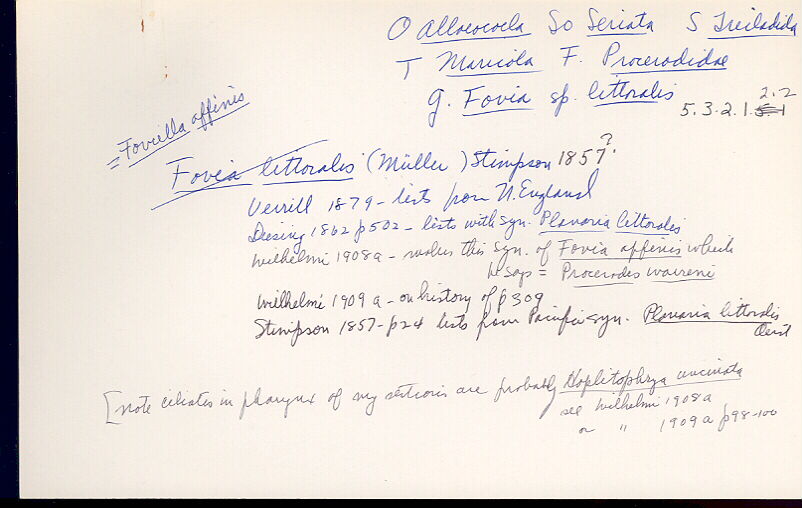 O Alloeocoela So Seriata S Tricladida
T Maricola F. Procerodidae
g. Fovia sp. littoralis 5.3.2.1.2.2
= Foviella affinis
Fovia littoralis (Müller) Stimpson 1857?
Verrill 1879 - lists from N. England
Diesing 1862 p502 - lists with syn. Planaria littoralis
Wilhelmi 1908a - makes this syn. of Fovia affinis which
he says = Procerodes warreni
Wilhelmi 1909a - on history of p309
Stimpson 1857 - p24 lists from Pacific syn. Planaria littoralis
Oerst
[note ciliates in pharynx of my sections are probably Hoplitophrya uncinata
see Wilhelmi 1908a
or " 1909a p98-100